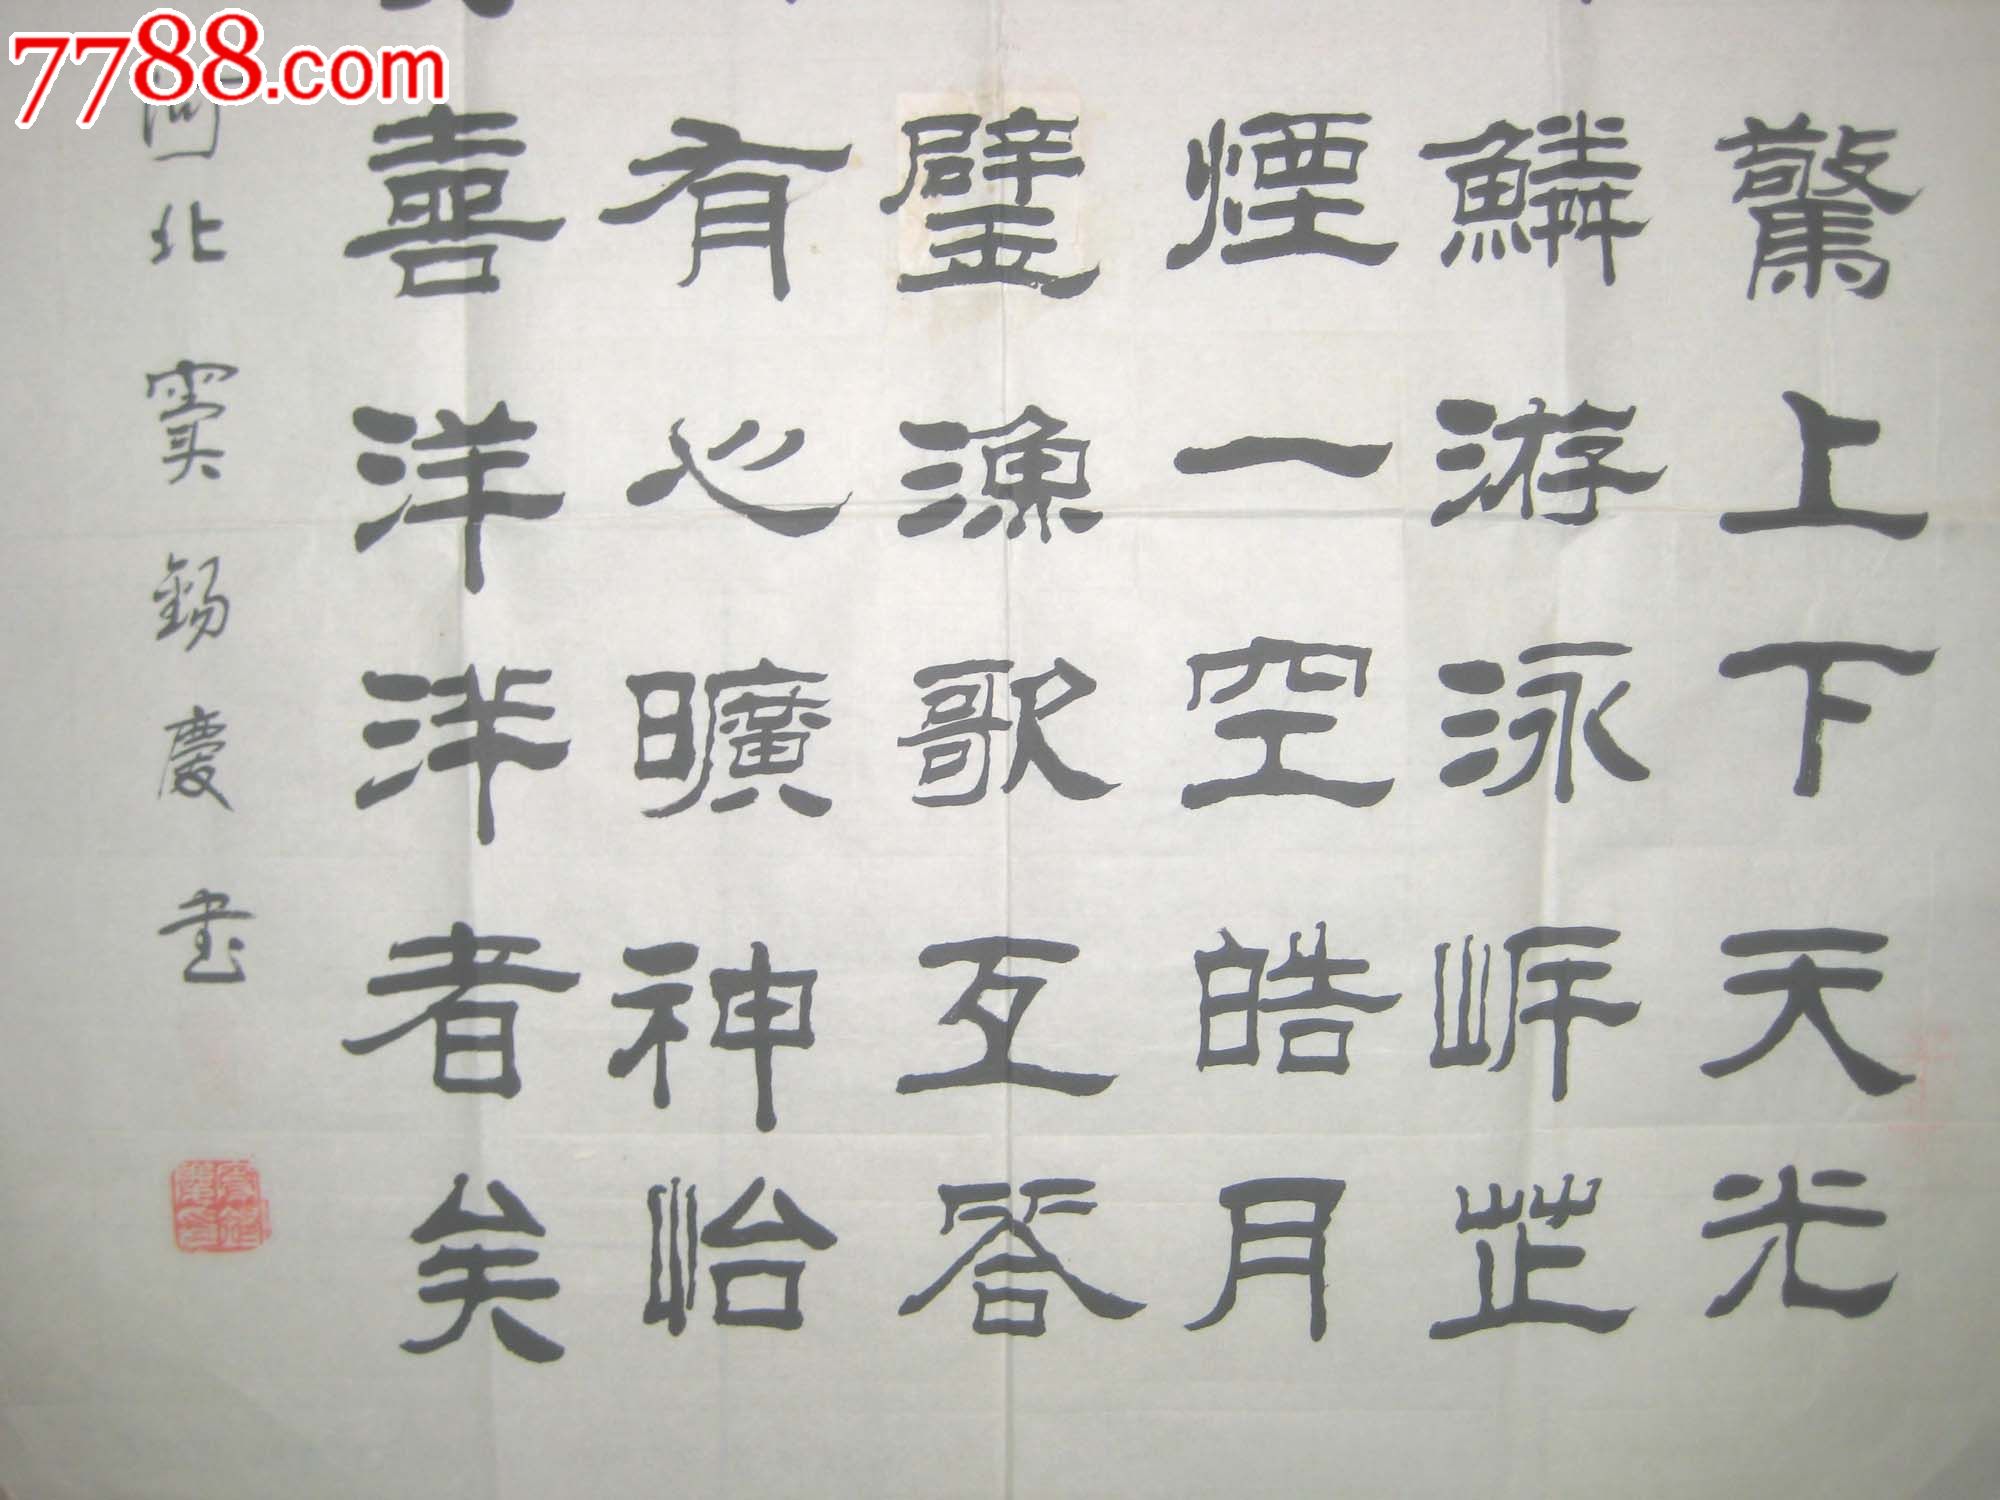 7788.com
驚上下天光
鱗游泳岸芷
煙一空皓月
璧漁歌互答
有心曠神怡
喜洋洋者矣
河北竇錫慶书